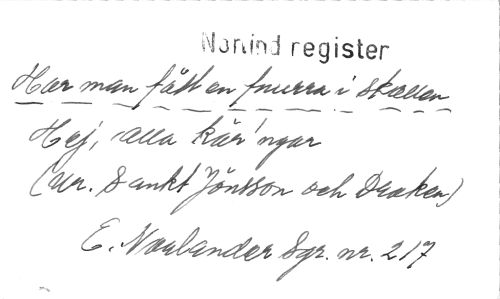 Norlind register
Har man fått en snurra i skallen
Hej, alla kär'ngar
(Ur. Sankt Jönsson och Draken)
E. Norlander Sgr. nr. 217